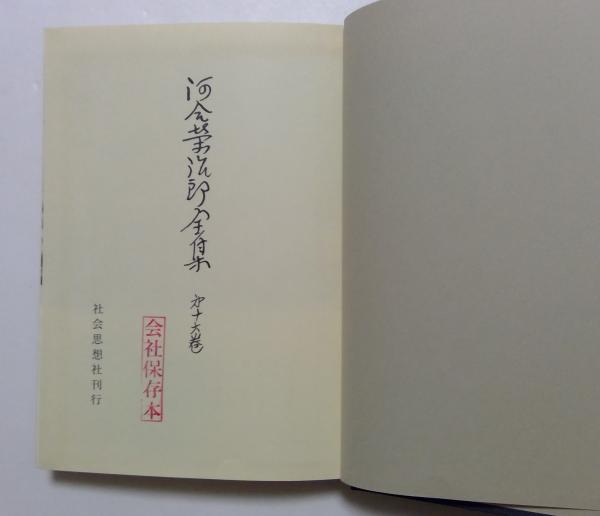 河合榮治郎全集
第十六巻
会社保存本
社会思想社刊行